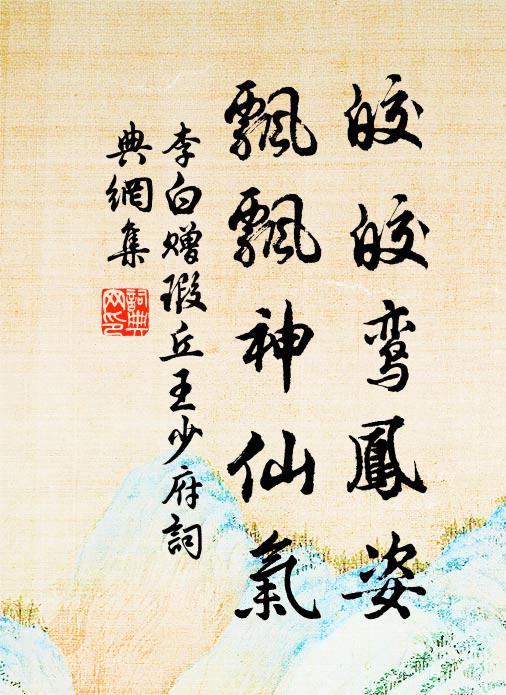 皎皎鸾鳳姿
飄飄神仙氣
李白赠瑕丘王少府詞
典網集
詞典
网印